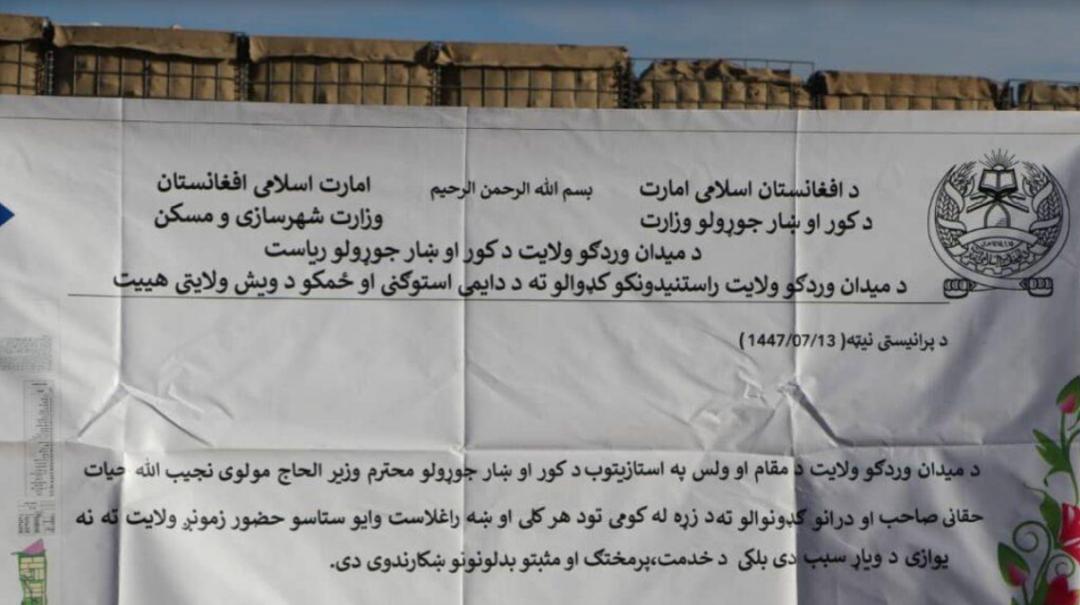 د افغانستان اسلامی امارت
بسم الله الرحمن الرحیم
امارت اسلامی افغانستان
د کور او ښار جوړولو وزارت
وزارت شهرسازی و مسکن
د میدان وردګو ولایت د کور او ښار جوړولو ریاست
د میدان وردګو ولایت راستنیدونکو کډوالو ته د دایمی استوګنی او ځمکو د ویش ولایتی هییت
د پرانیستی نیټه( 1447/07/13)
د میدان وردګو ولایت د مقام او ولس په استازیتوب د کور او ښار جوړولو محترم وزیر الحاج مولوی نجیب الله حیات
حقانی صاحب او درانو ګډونوالو ته د زړه له کومی تود هر کلی او ښه راغلاست وایو ستاسو حضور زمونږ ولایت ته نه
یوازی د ویاړ سبب دی بلکی د خدمت،پرمختګ او مثبتو بدلونونو ښکارندوی دی.